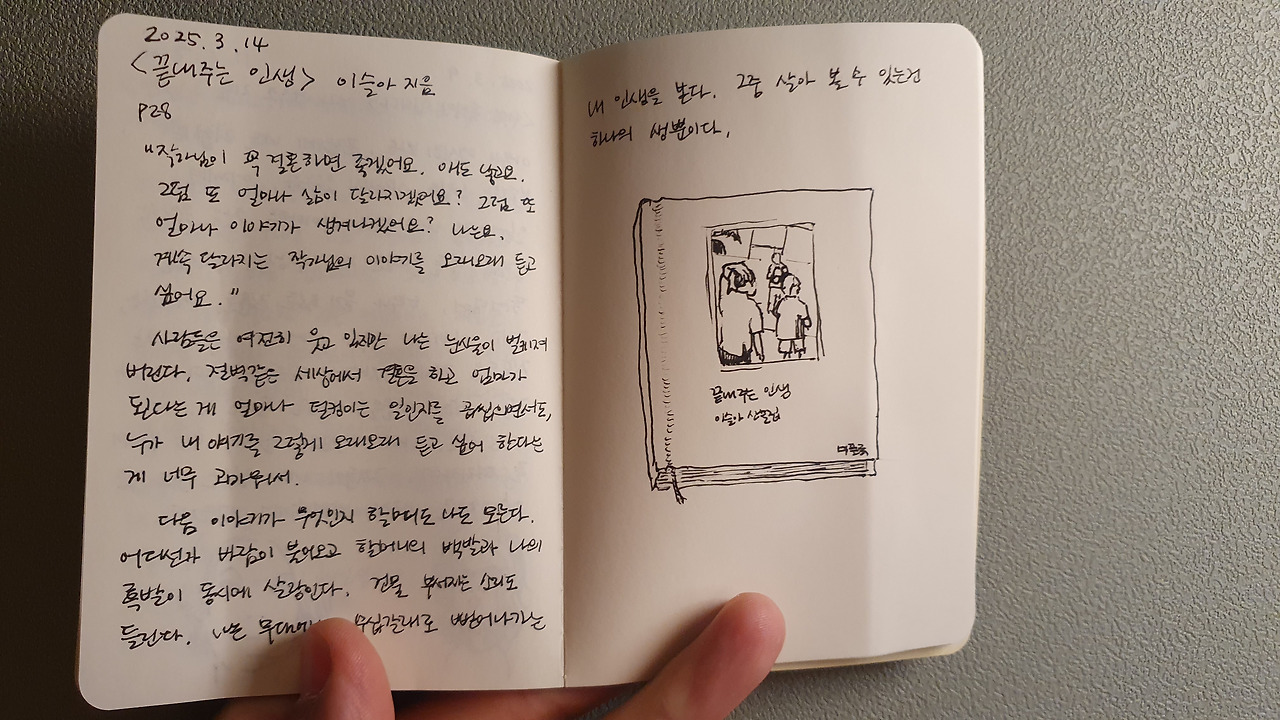 2025.3.14
<끝내주는 인생> 이슬아 지음
P28
"작가님이 꼭 결혼하면 좋겠어요. 애도 낳고요.
그럼 또 얼마나 삶이 달라지겠어요? 그럼 또
얼마나 이야기가 생겨나겠어요? 나는요.
계속 달라지는 작가님의 이야기를 오래오래 듣고
싶어요."
사람들은 여전히 웃고 있지만 나는 눈시울이 벌개져
버린다. 절벽같은 세상에서 결혼을 하고 엄마가
된다는 게 얼마나 덜컹이는 일인지를 곱씹으면서도,
누가 내 얘기를 그렇게 오래오래 듣고 싶어 한다는
게 너무 고마워서.
다음 이야기가 무엇인지 할머니도 나도 모른다.
어디선가 바람이 불어오고 할머니의 백발과 나의
흑발이 동시에 살랑인다. 건물 부서지는 소리도
들린다. 나는 무대에서 수십갈래로 뻗어나가는
내 인생을 본다. 그중 살아 볼 수 있는건
하나의 생뿐이다.
끝내주는 인생
이슬아 산문집